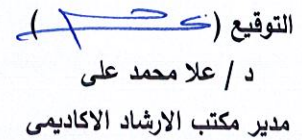 التوقيع ( )
د / علا محمد على
مدير مكتب الارشاد الاكاديمى